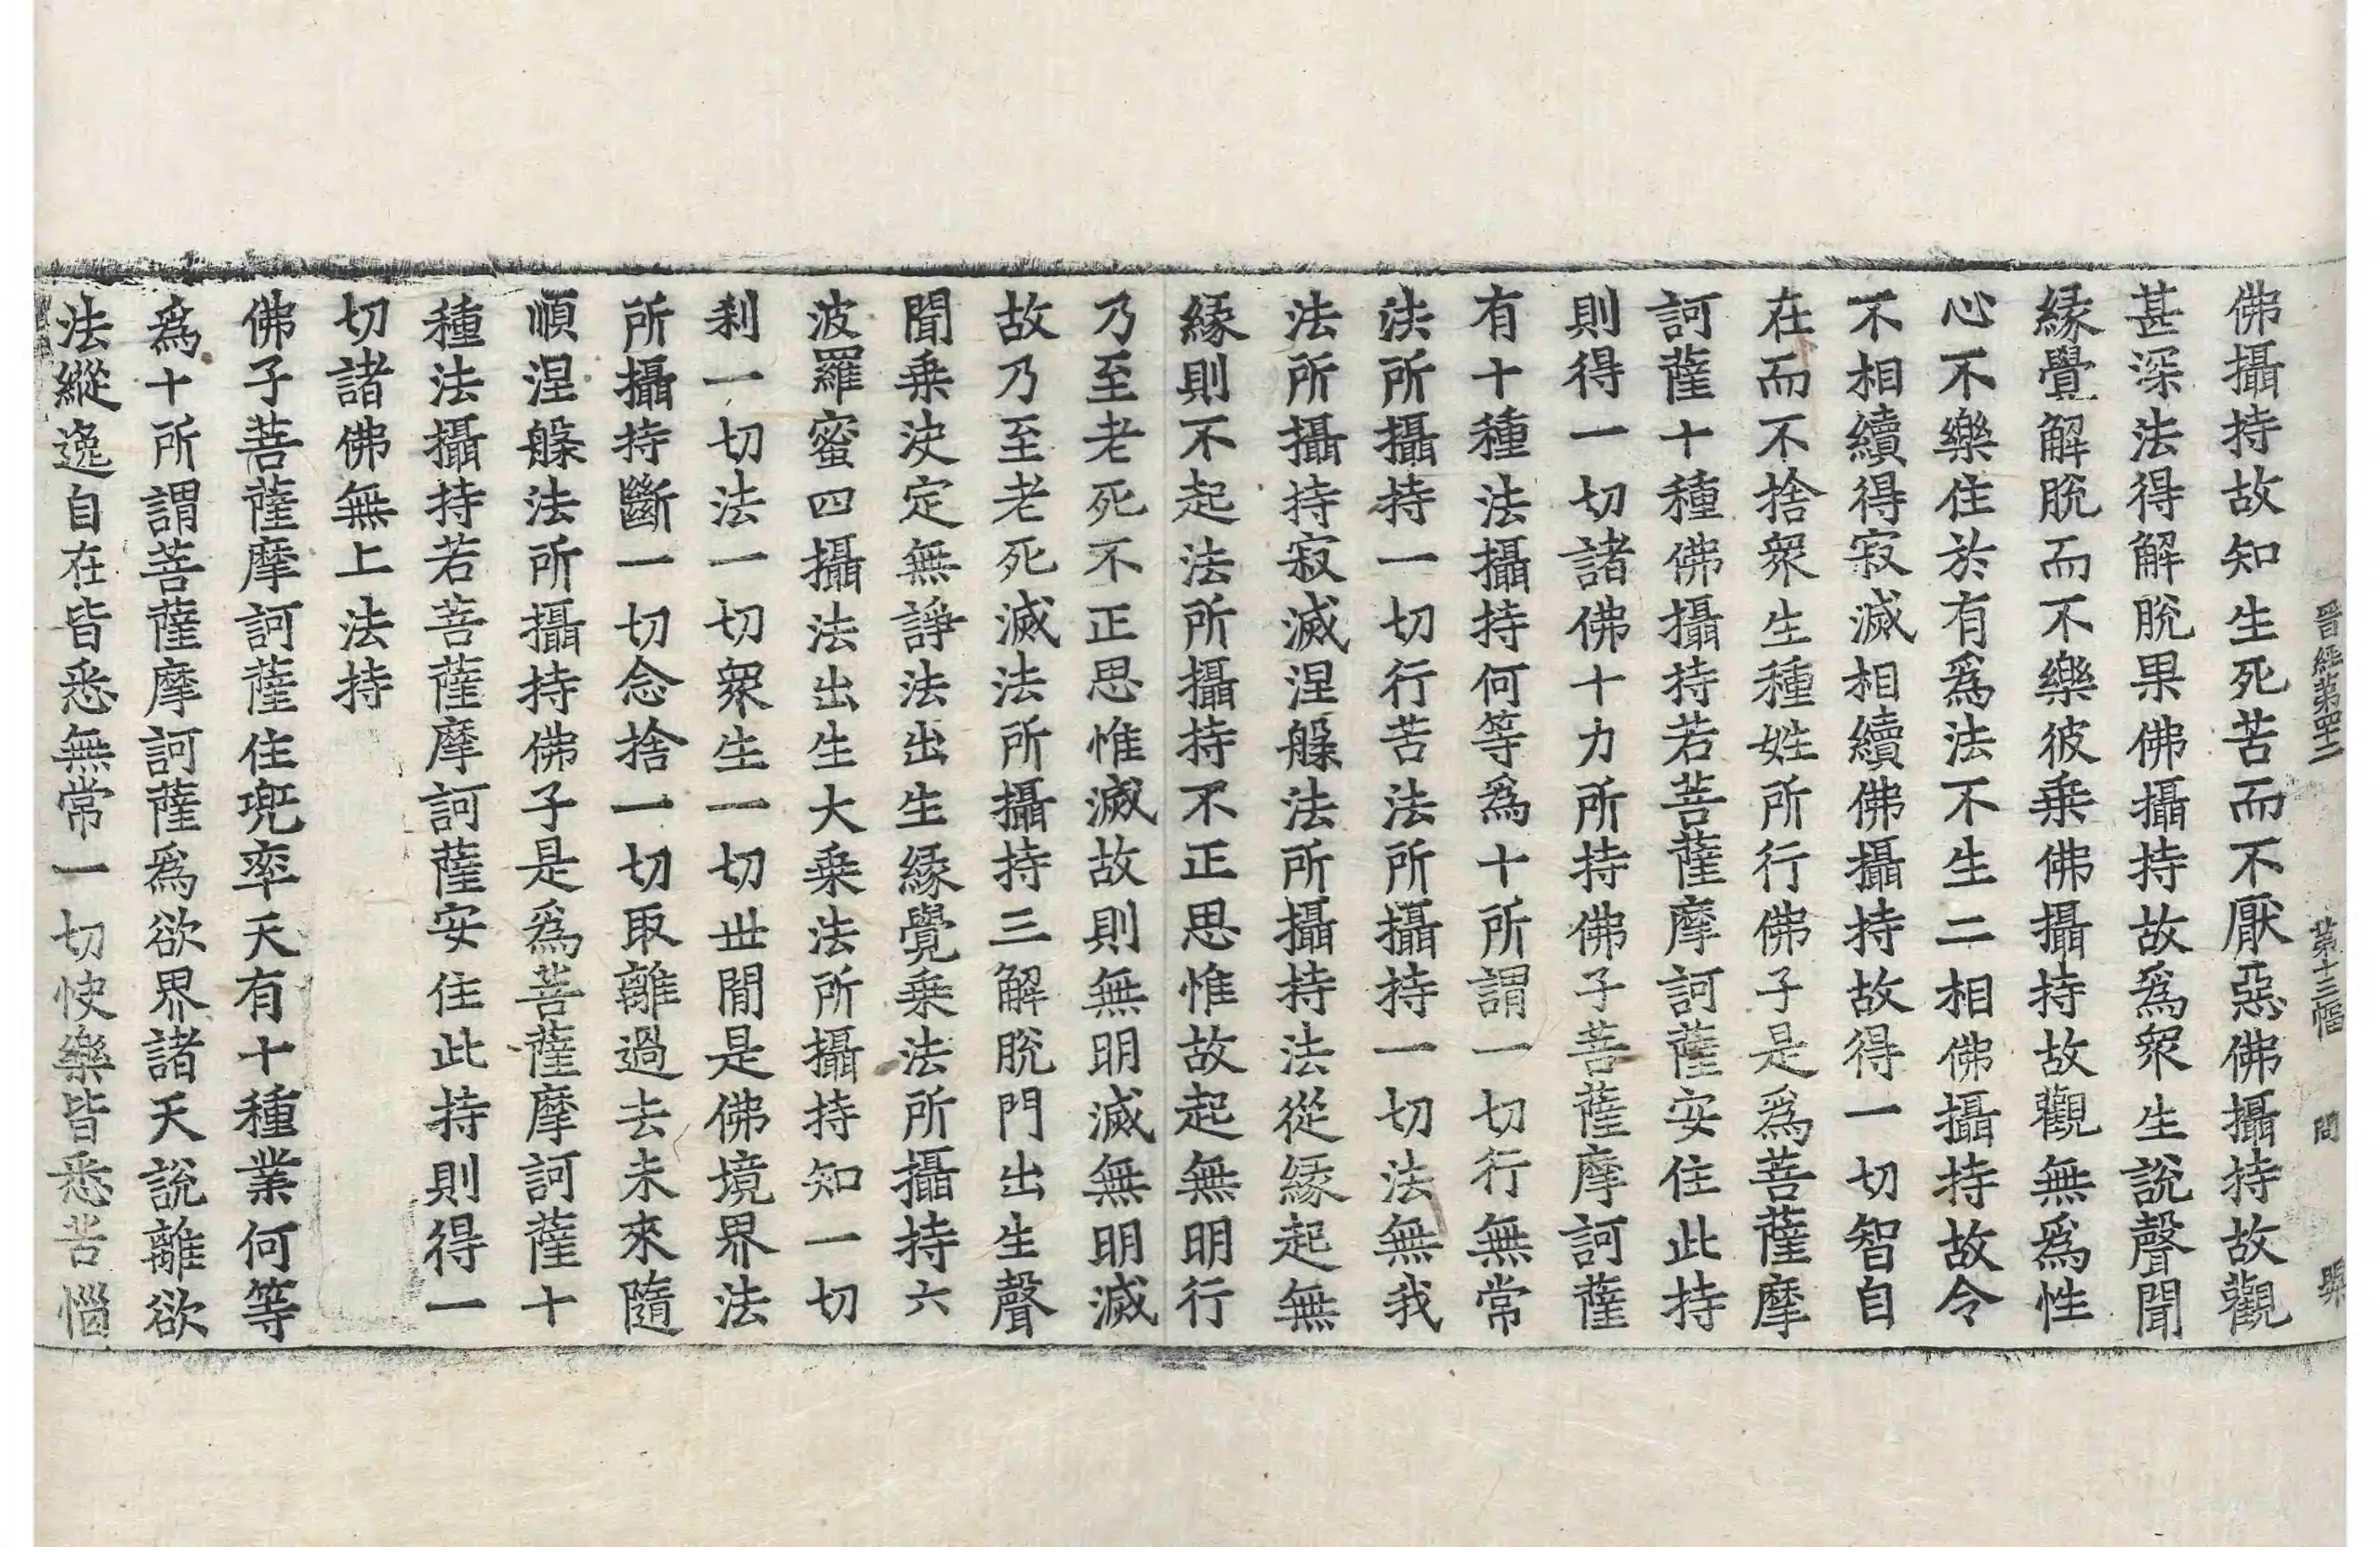 晉經第四十二 第十三幅 問
佛攝持故知生死苦而不厭惡佛攝持故觀
甚深法得解脫果佛攝持故爲衆生說聲聞
緣覺解脫而不樂彼乗佛攝持故觀無爲性
心不樂住於有爲法不生二相佛攝持故令
不相續得寂滅相續佛攝持故得一切智自
在而不捨衆生種姓所行佛子是爲菩薩摩
訶薩十種佛攝持若菩薩摩訶薩安住此持
則得一切諸佛十力所持佛子菩薩摩訶薩
有十種法攝持何等爲十所謂一切行無常
法所攝持一切行苦法所攝持一切法無我
法所攝持寂滅涅槃法所攝持法從緣起無
緣則不起法所攝持不正思惟故起無明行
乃至老死不正思惟滅故則無明滅無明滅
故乃至老死滅法所攝持三解脫門出生聲
聞乗決定無諍法出生緣覺乗法所攝持六
波羅蜜四攝法出生大乗法所攝持知一切
剎一切法一切衆生一切世間是佛境界法
所攝持斷一切念捨一切取離過去未來隨
順涅槃法所攝持佛子是爲菩薩摩訶薩十
種法攝持若菩薩摩訶薩安住此持則得一
切諸佛無上法持
佛子菩薩摩訶薩住兜率天有十種業何等
爲十所謂菩薩摩訶薩爲欲界諸天說離欲
法縱逸自在皆悉無常一切快樂皆悉苦惱